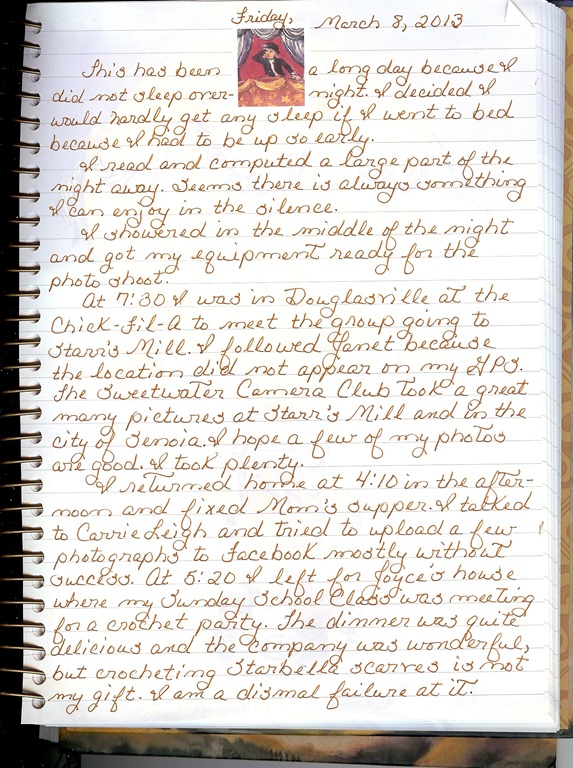 Friday, March 8, 2013
This has been a long day because I
did not sleep over-night. I decided I
would hardly get any sleep if I went to bed
because I had to be up so early.
I read and computed a large part of the
night away. Seems there is always something
I can enjoy in the silence.
I showered in the middle of the night
and got my equipment ready for the
photo shoot.
At 7:30 I was in Douglasville at the
Chick-Fil-A to meet the group going to
Starr's Mill. I followed Janet because
the location did not appear on my GPS.
The Sweetwater Camera Club took a great
many pictures at Starr's Mill and in the
city of Senoia. I hope a few of my photos
are good. I took plenty.
I returned home at 4:10 in the after-
noon and fixed Mom's supper. I talked
to Carrie Leigh and tried to upload a few
photographs to Facebook mostly without
success. At 5:20 I left for Joyce's house
where my Sunday School Class was meeting
for a crochet party. The dinner was quite
delicious and the company was wonderful,
but crocheting Starbella scarves is not
my gift. I am a dismal failure at it.